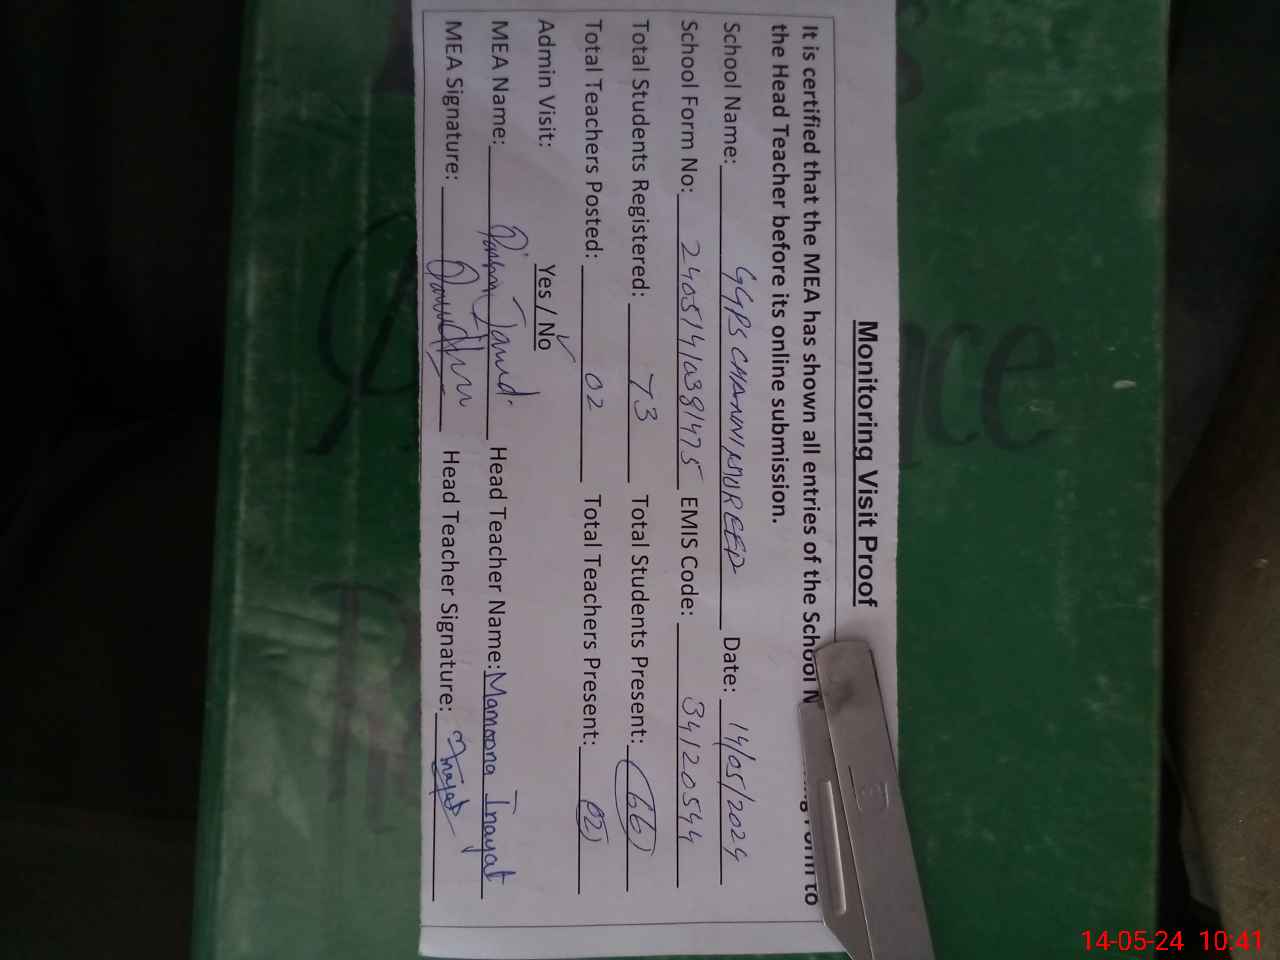 Monitoring Visit Proof
It is certified that the MEA has shown all entries of the School to
the Head Teacher before its online submission.
School Name: GGPS CHANNI MUREED Date: 14/05/2024
School Form No: EMIS Code: 34120544
Total Students Registered: 73 Total Students Present: 66
Total Teachers Posted: 02 Total Teachers Present: 02
Admin Visit: Yes / No
MEA Name: Javid. Head Teacher Name: Mamoona Inayat
MEA Signature: Head Teacher Signature: Inayat
14-05-24 10:41